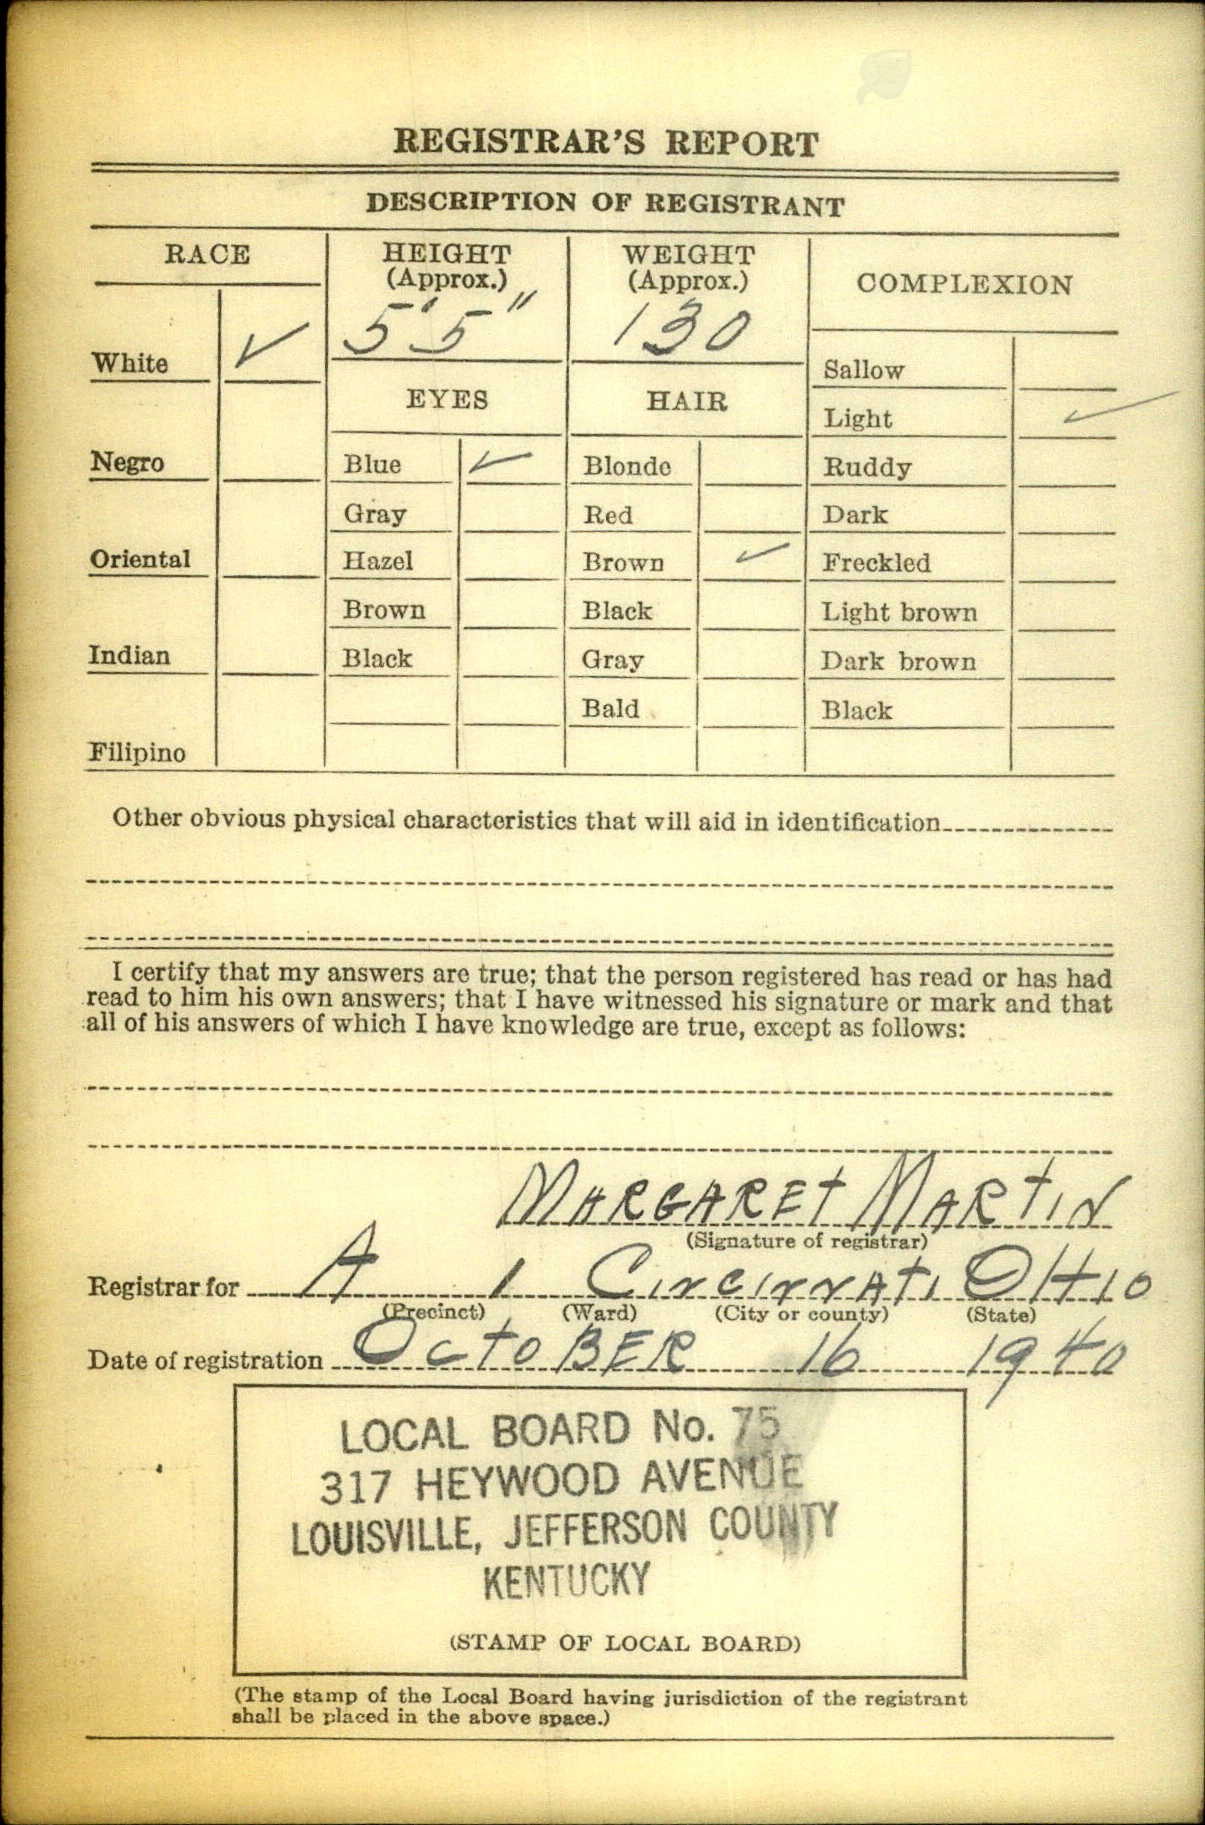 REGISTRAR'S REPORT
DESCRIPTION OF REGISTRANT
RACE
HEIGHT
(Approx.)
WEIGHT
(Approx.)
COMPLEXION
5' 5"
130
White ✓
Sallow
EYES
HAIR
Light ✓
Negro
Blue ✓
Blonde
Ruddy
Gray
Red
Dark
Oriental
Hazel
Brown ✓
Freckled
Brown
Black
Light brown
Indian
Black
Gray
Dark brown
Bald
Black
Filipino
Other obvious physical characteristics that will aid in identification
I certify that my answers are true; that the person registered has read or has had
read to him his own answers; that I have witnessed his signature or mark and that
all of his answers of which I have knowledge are true, except as follows:
MARGARET MARTIN
(Signature of registrar)
Registrar for A 1 CINCINNATI OHIO
(Precinct) (Ward) (City or county) (State)
Date of registration OCTOBER 16 1940
LOCAL BOARD No. 75
317 HEYWOOD AVENUE
LOUISVILLE, JEFFERSON COUNTY
KENTUCKY
(STAMP OF LOCAL BOARD)
(The stamp of the Local Board having jurisdiction of the registrant
shall be placed in the above space.)